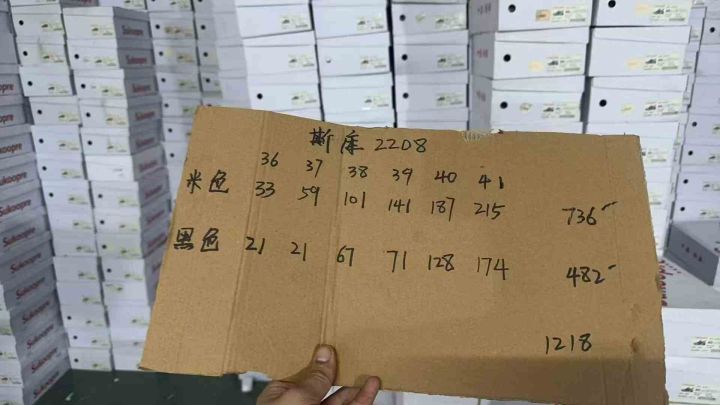 斯库 2208
36 37 38 39 40 41
米色 33 59 101 141 187 215 736
黑色 21 21 67 71 128 174 482
1218
Sukoopre
Sukoopre
Sukoopre
Sukoopre
Sukoopre
Sukoopre